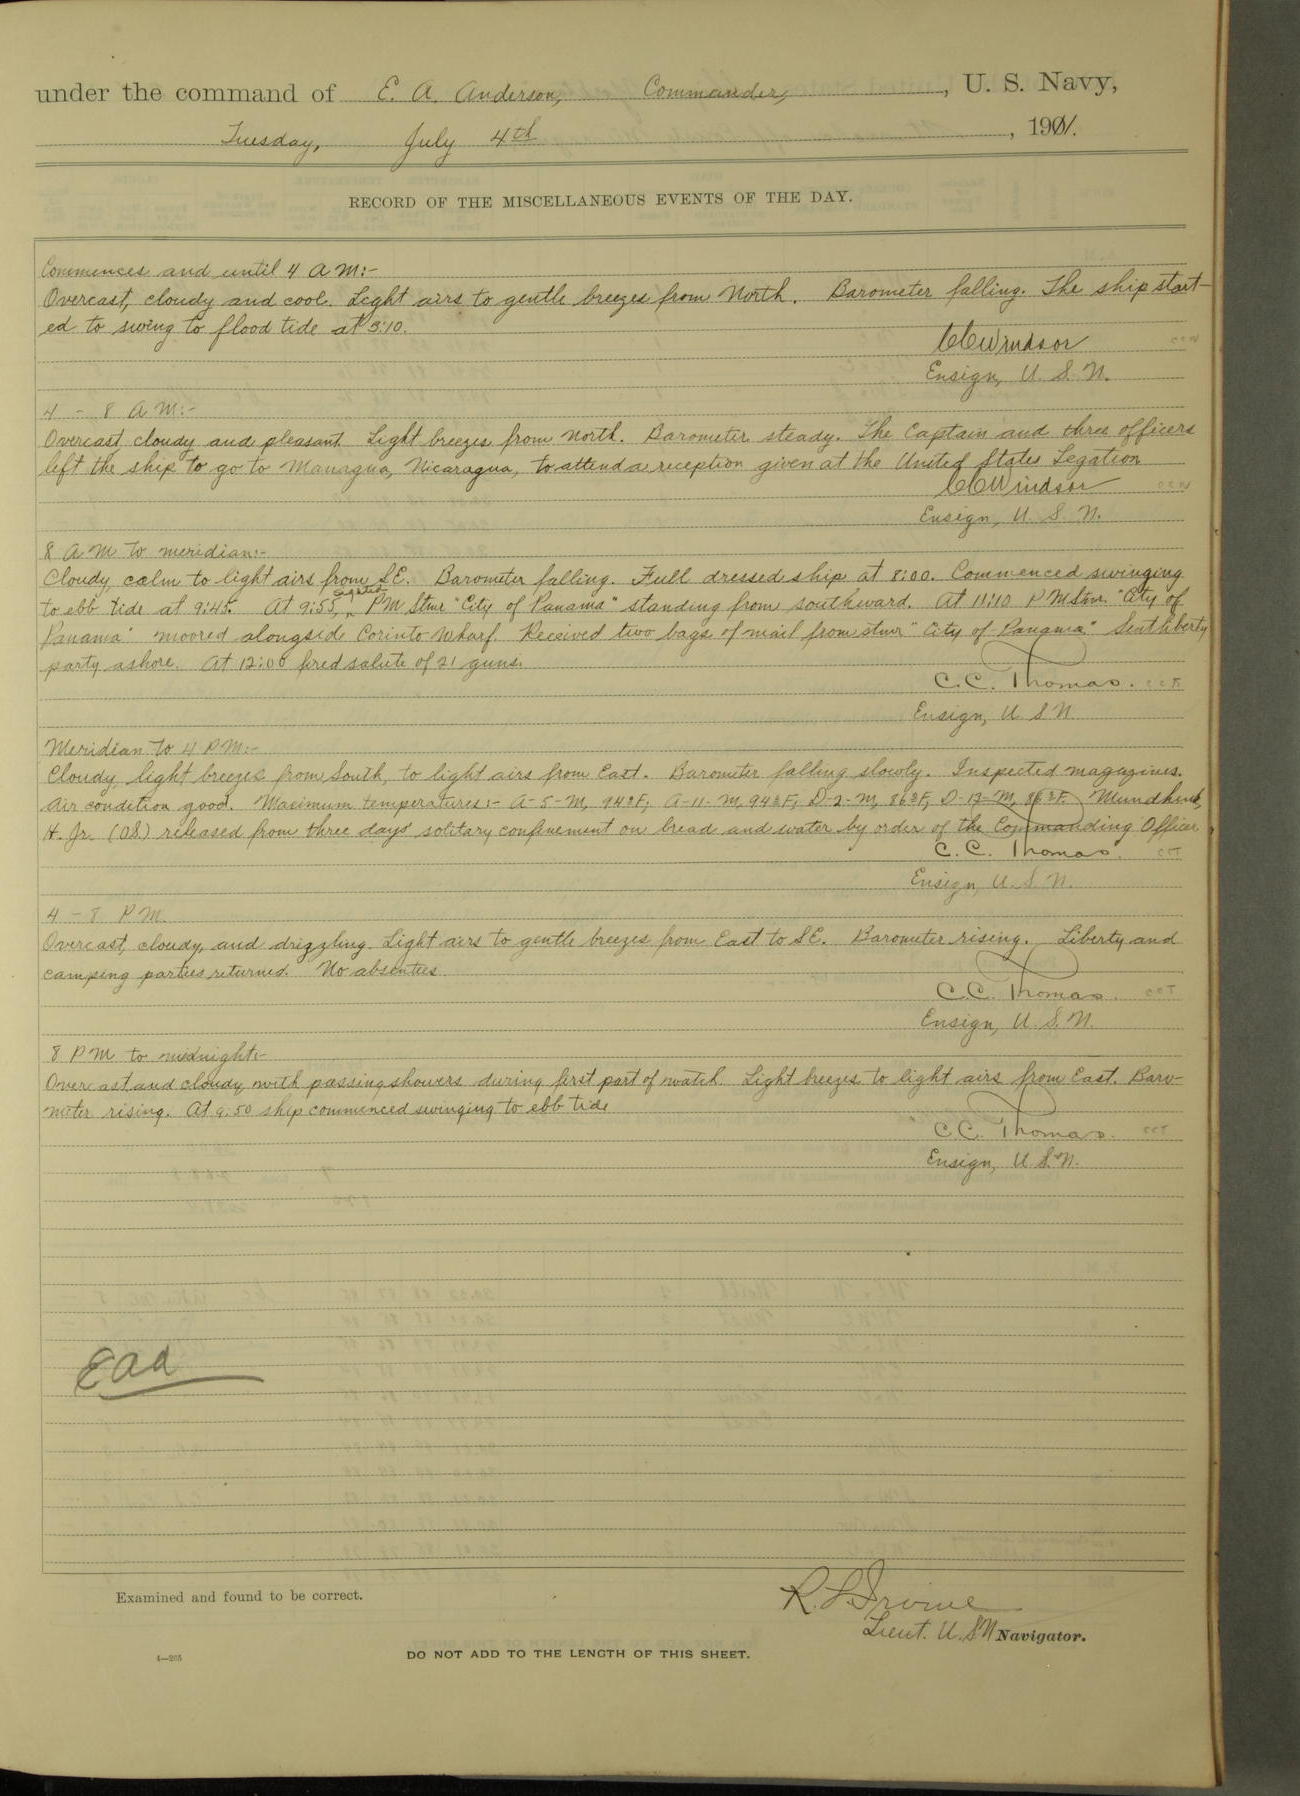 under the command of E. A. Anderson, Commander, U. S. Navy,
Tuesday, July 4th, 1911.
RECORD OF THE MISCELLANEOUS EVENTS OF THE DAY.
Commences and until 4 A M:-
Overcast, cloudy and cool. Light airs to gentle breezes from North. Barometer falling. The ship start-
ed to swing to flood tide at 3:10.
CCWindsor
Ensign, U. S. N.
4 - 8 A M:-
Overcast, cloudy and pleasant. Light breezes from North. Barometer steady. The Captain and three officers
left the ship to go to Managua, Nicaragua, to attend a reception given at the United States Legation
CCWindsor
Ensign, U. S. N.
8 A M to meridian:-
Cloudy, calm to light airs from SE. Barometer falling. Full dressed ship at 8:00. Commenced swinging
to ebb tide at 9:45. At 9:55, sighted PM Stmr "City of Panama" standing from southward. At 11:10 P M Stmr. "City of
Panama" moored alongside Corinto Wharf. Received two bags of mail from stmr "City of Panama." Sent liberty
party ashore. At 12:00 fired salute of 21 guns.
C.C. Thomas. CCT
Ensign, U S N
Meridian to 4 P M:-
Cloudy, light breezes from South, to light airs from East. Barometer falling slowly. Inspected magazines.
Air condition good. Maximum temperatures:- A-5-M, 94°F; A-11-M, 94°F; D-2-M, 86°F; D-13-M, 86°F.
H. Jr. (OS) released from three days' solitary confinement on bread and water by order of the Commanding Officer
C.C. Thomas. CCT
Ensign, U. S N.
4 - 8 P M.
Overcast, cloudy, and drizzling. Light airs to gentle breezes from East to SE. Barometer rising. Liberty and
camping parties returned. No absentees.
C.C. Thomas. CCT
Ensign, U. S. N.
8 P M to midnight:-
Overcast and cloudy with passing showers during first part of watch. Light breezes to light airs from East. Baro-
meter rising. At 9:50 ship commenced swinging to ebb tide
C C. Thomas. CCT
Ensign, U S. N.
EAA
Examined and found to be correct.
R. L. Irvine
Lieut. U. S N Navigator.
DO NOT ADD TO THE LENGTH OF THIS SHEET.